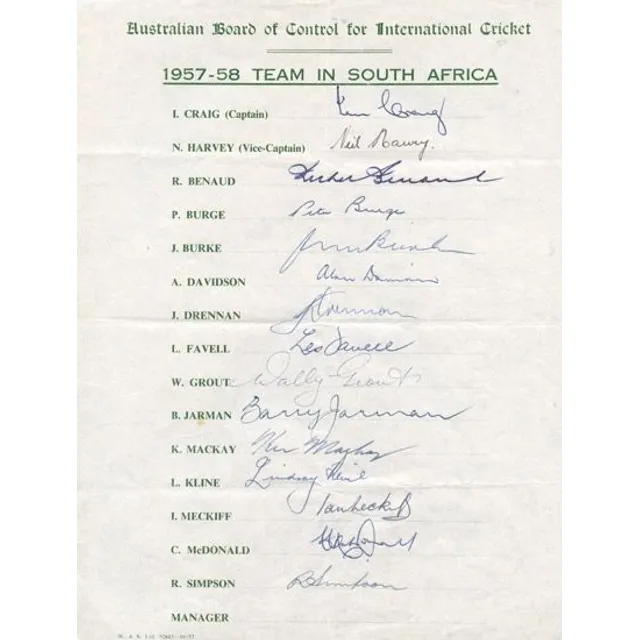 Australian Board of Control for International Cricket
1957-58 TEAM IN SOUTH AFRICA
I. CRAIG (Captain)
N. HARVEY (Vice-Captain) Neil Harvey.
R. BENAUD
P. BURGE Peter Burge
J. BURKE
A. DAVIDSON Alan Davidson
J. DRENNAN
L. FAVELL Les Favell
W. GROUT Wally Grout
B. JARMAN Barry Jarman
K. MACKAY Ken Mackay
L. KLINE Lindsay Kline
I. MECKIFF Ian Meckiff
C. McDONALD
R. SIMPSON R Simpson
MANAGER